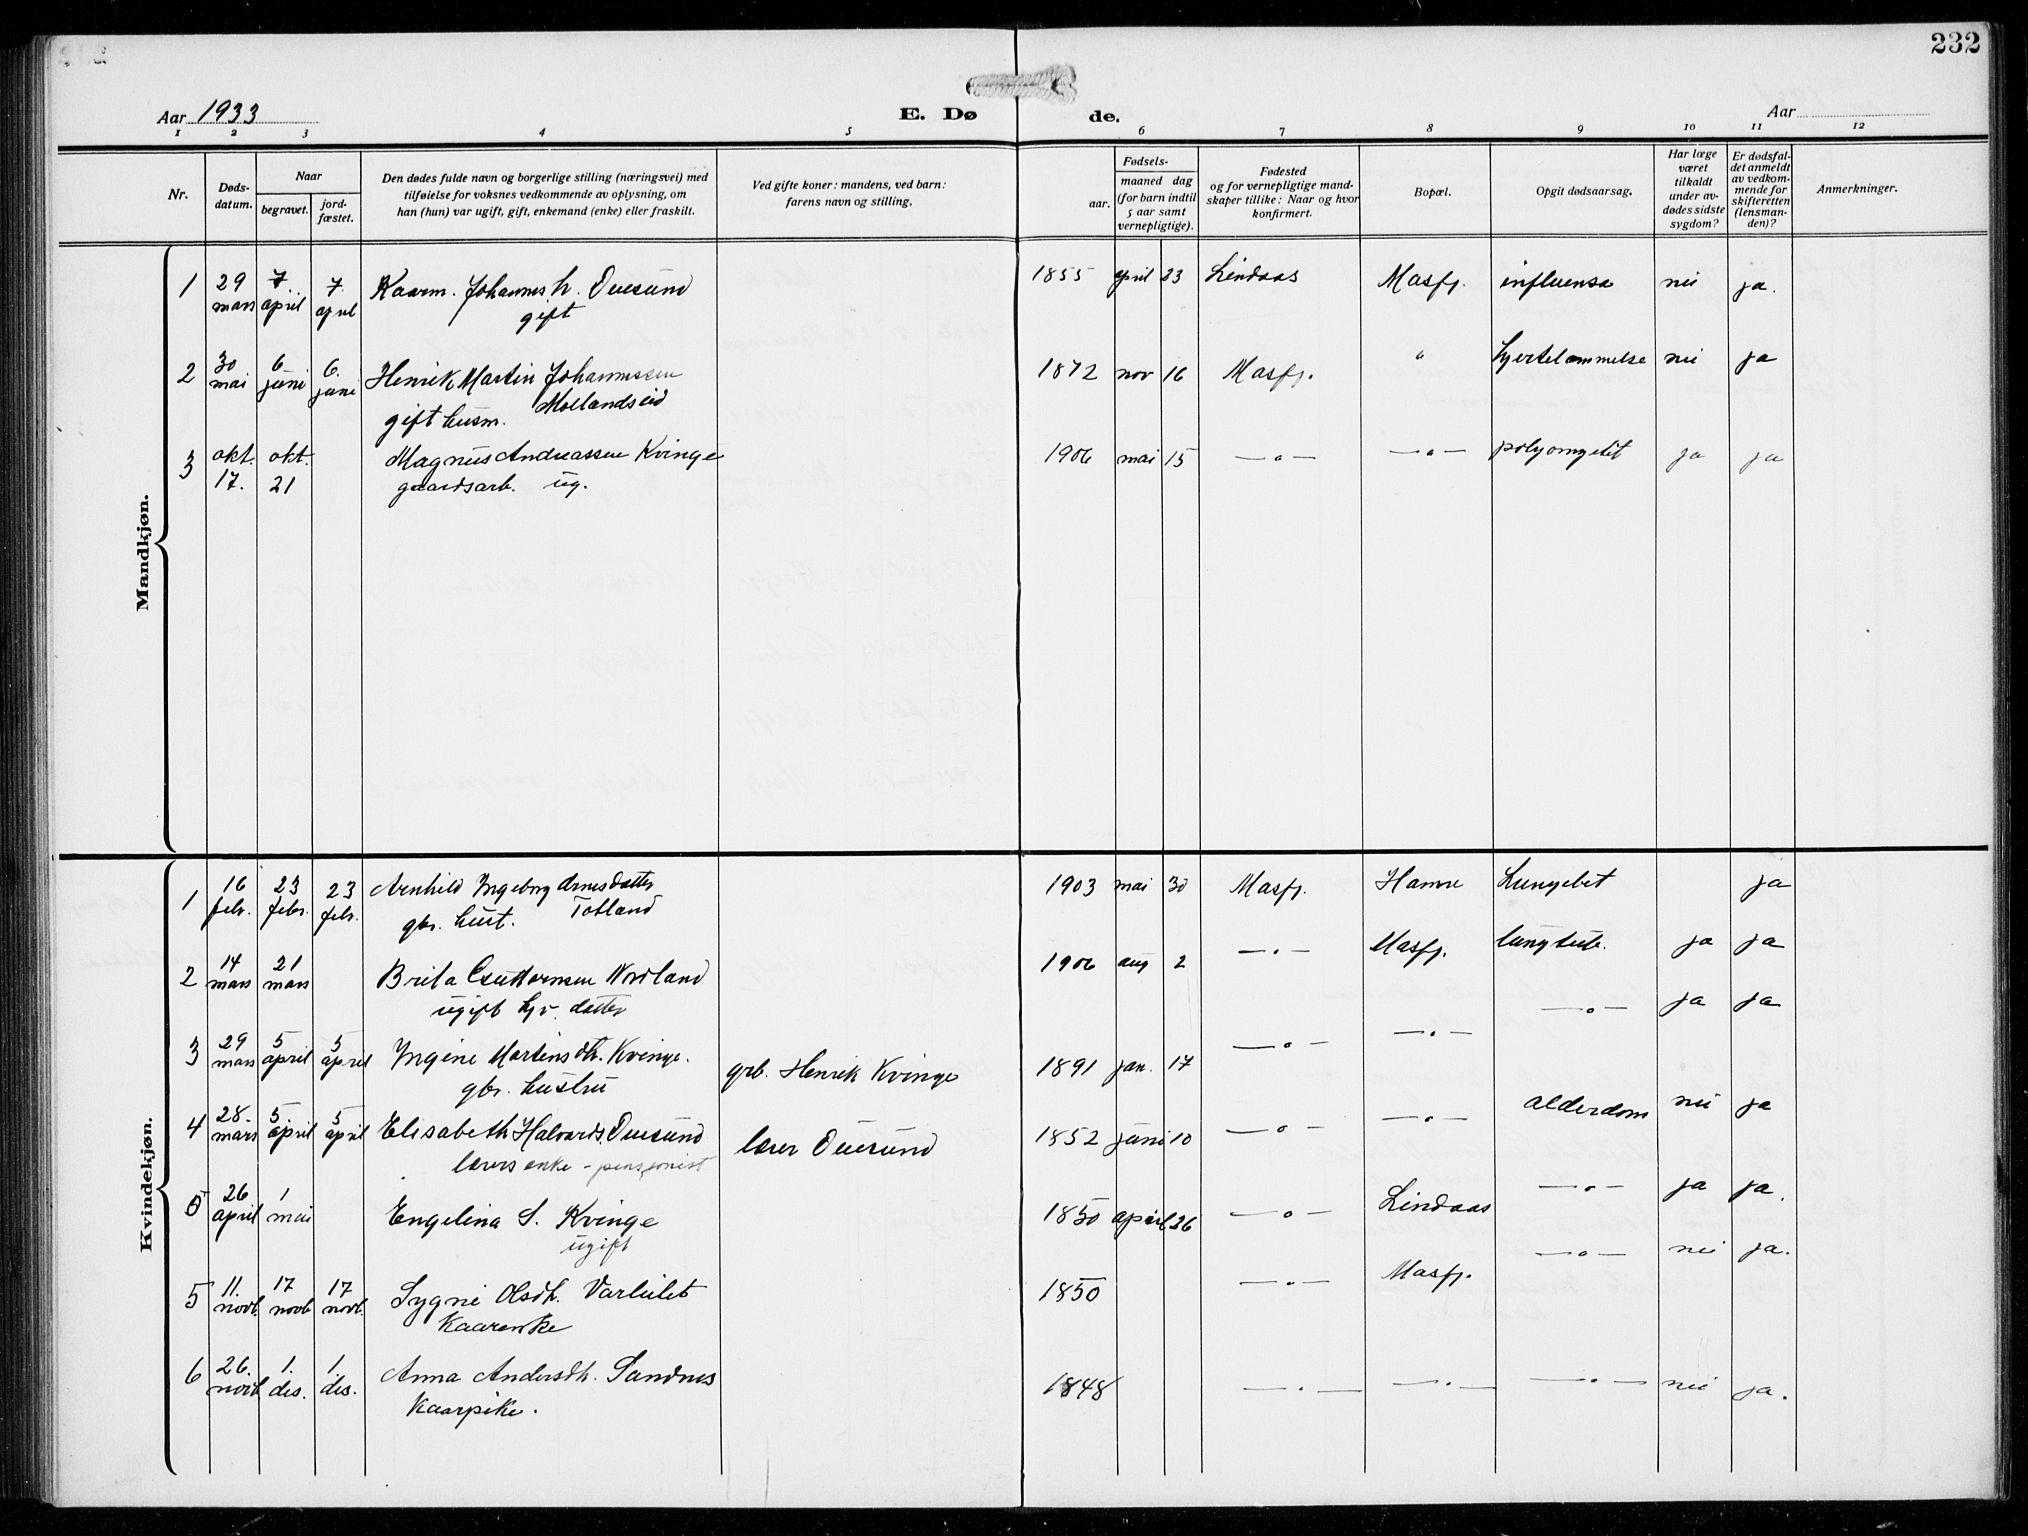 232
Aar 1933
E. Dø
de.
Aar
1 2 3 4 5 6 7 8 9 10 11 12
Nr.
Døds-
datum.
Naar
begravet.
jord-
fæstet.
Den dødes fulde navn og borgerlige stilling (næringsvei) med
tilføielse for voksnes vedkommende av oplysning, om
han (hun) var ugift, gift, enkemand (enke) eller fraskilt.
Ved gifte koner: mandens, ved barn:
farens navn og stilling.
Fødsels-
aar.
maaned dag
(for barn indtil
5 aar samt
vernepligtige).
Fødested
og for vernepligtige mand-
skaper tillike: Naar og hvor
konfirmert.
Bopæl.
Opgit dødsaarsag.
Har læge
været
tilkaldt
under av-
dødes sidste
sygdom?
Er dødsfal-
det anmeldt
av vedkom-
mende for
skifteretten
(lensman-
den)?
Anmerkninger.
Mandkjøn.
1 29 mars 7. april 7. april Kaarm. Johannes h. Duesund 1855 april 23 Lindaas Masfj. influensa nei ja.
gift
2 30 mai 6 juni 6. juni Henrik Martin Johannessen 1872 nov 16 Masfj. " hjertelammelse nei ja
Mollandseid
gift husm.
3 okt. 17. okt. 21 Magnus Andreassen Kvinge 1906 mai 15 — " — — " — polyomyelit ja ja
gaardsarb. ug.
Kvindekjøn.
1 16 febr. 23 febr. 23 febr. Arnhild Ingeborg Arnesdatter 1903 mai 30 Masfj. Hamre Lungebet ja
gbr. hust. Totland
2 14 mars 21 mars Brita Nordland 1906 aug 2 — " — Masfj. lungtub. ja ja
ugift hjv. datter
3 29 mars 5 april 5 april Ingine Martinsdh. Kvinge. grb. Henrik Kvinge 1891 jan. 17 — " — — " — — " — ja ja
gbr. hustru
4 28. mars 5 april 5 april Elisabeth Halvards. Duesund lærer Duesund 1852 juni 10 — " — — " — alderdom nei ja
lærers enke - pensjonist
5 26 april 1 mai Engelina S. Kvinge 1850 april 26 — " — Lindaas — " — ja ja.
ugift
5 11. novb. 17 novb. 17 novb. Sygni Olsdh. Varlulet 1850 — " — Masfj. — " — nei ja.
Kaarenke
6 26. novb. 1. des. 1. des. Anna Andersdh. Sandnes 1848 — " — — " — — " — nei ja.
Kaarpike.